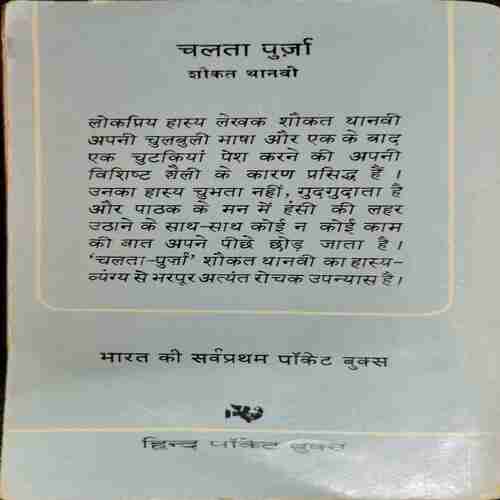 चलता पुर्ज़ा
शौकत थानवी
लोकप्रिय हास्य लेखक शौकत थानवी
अपनी चुलबुली भाषा और एक के बाद
एक चुटकियां पेश करने की अपनी
विशिष्ट शैली के कारण प्रसिद्ध हैं ।
उनका हास्य चुभता नहीं, गुदगुदाता है
और पाठक के मन में हंसी की लहर
उठाने के साथ-साथ कोई न कोई काम
की बात अपने पीछे छोड़ जाता है ।
'चलता-पुर्ज़ा' शौकत थानवी का हास्य-
व्यंग्य से भरपूर अत्यंत रोचक उपन्यास है ।
भारत की सर्वप्रथम पॉकेट बुक्स
हिन्द पॉकेट बुक्स